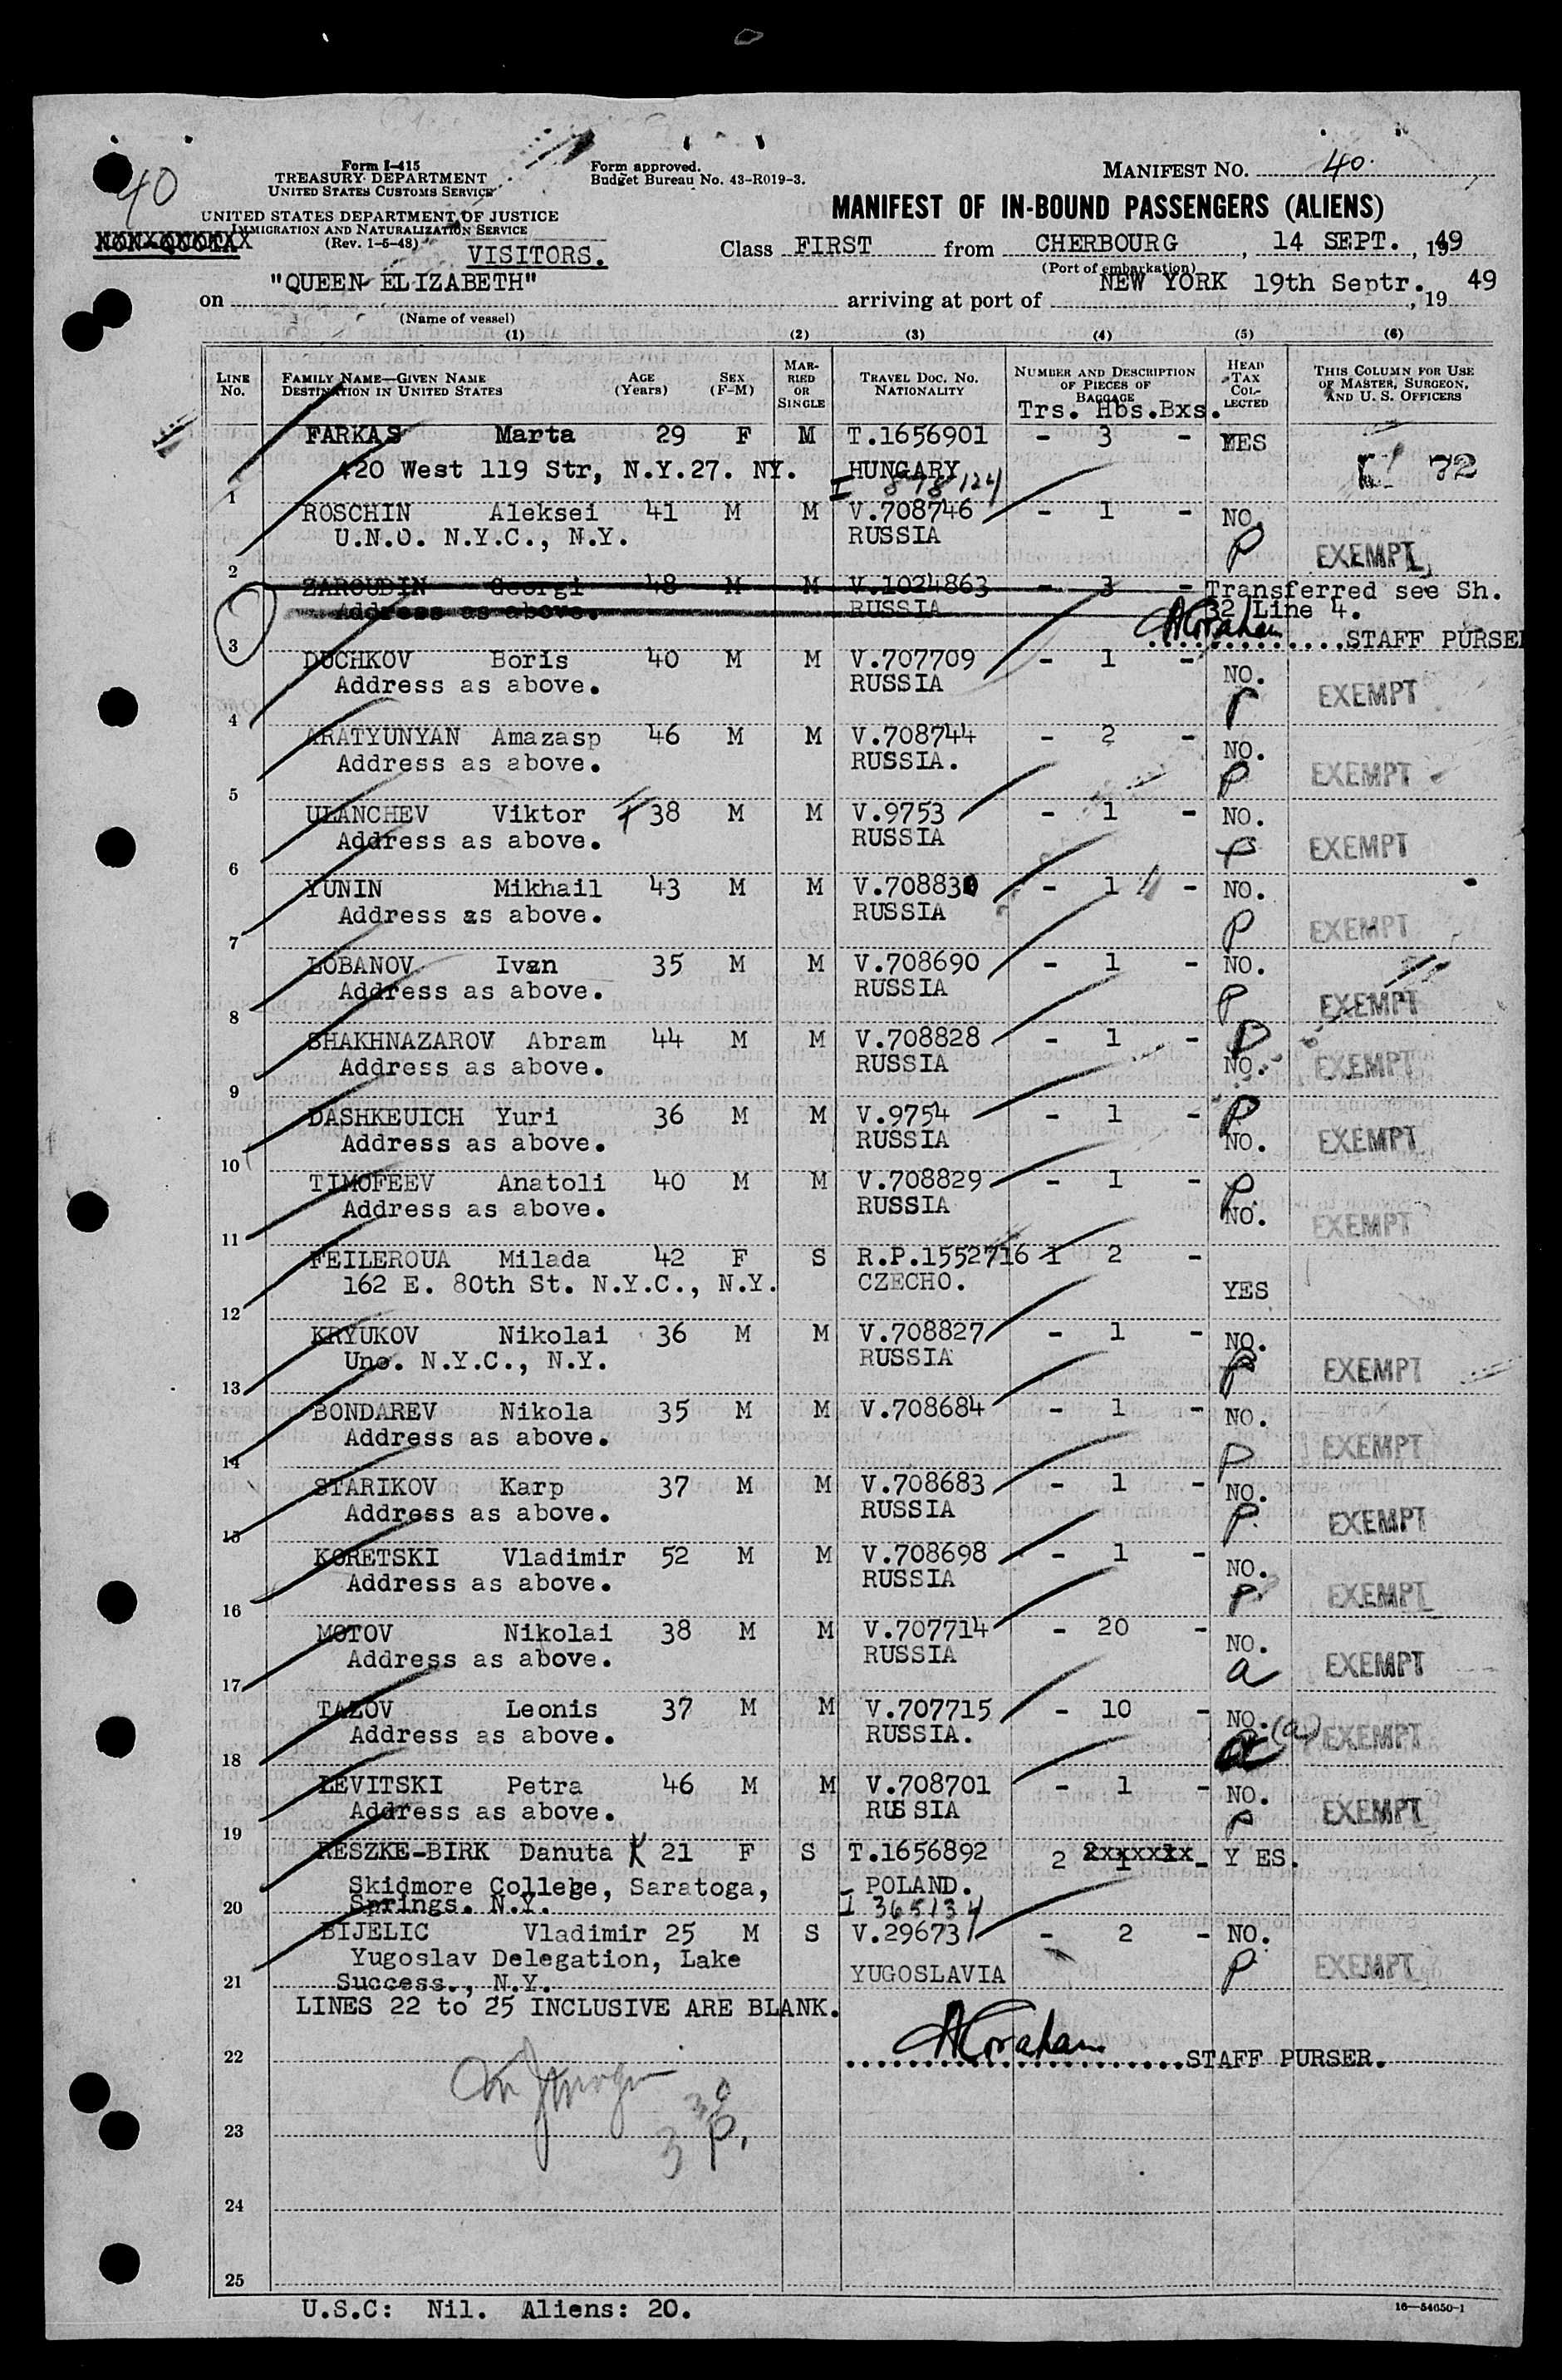 40
Form I-415
TREASURY DEPARTMENT
UNITED STATES CUSTOMS SERVICE
UNITED STATES DEPARTMENT OF JUSTICE
IMMIGRATION AND NATURALIZATION SERVICE
(Rev. 1-5-48)
NON-QUOTA
VISITORS.
Form approved.
Budget Bureau No. 43-R019-3.
MANIFEST NO. 40.
MANIFEST OF IN-BOUND PASSENGERS (ALIENS)
Class FIRST from CHERBOURG, 14 SEPT., 1949
(Port of embarkation)
on "QUEEN ELIZABETH" arriving at port of NEW YORK 19th Septr., 19 49
(Name of vessel)
(1) (2) (3) (4) (5) (6)
LINE NO. FAMILY NAME—GIVEN NAME DESTINATION IN UNITED STATES AGE (Years) SEX (F-M) MARRIED OR SINGLE TRAVEL DOC. NO. NATIONALITY NUMBER AND DESCRIPTION OF PIECES OF BAGGAGE HEAD TAX COLLECTED THIS COLUMN FOR USE OF MASTER, SURGEON, AND U. S. OFFICERS
Trs. Hbs.Bxs.
FARKAS Marta 29 F M T.1656901 - 3 - YES
1 420 West 119 Str, N.Y.27. NY. HUNGARY 72
I 878124
ROSCHIN Aleksei 41 M M V.708746 - 1 - NO.
2 U.N.O. N.Y.C., N.Y. RUSSIA P EXEMPT
ZAROUDIN Georgi 48 M M V.1024863 - 3 - Transferred see Sh.
3 Address as above. RUSSIA 32 Line 4.
AGraham STAFF PURSER
DUCHKOV Boris 40 M M V.707709 - 1 - NO.
4 Address as above. RUSSIA P EXEMPT
ARATYUNYAN Amazasp 46 M M V.708744 - 2 - NO.
5 Address as above. RUSSIA. P EXEMPT
ULANCHEV Viktor 38 M M V.9753 - 1 - NO.
6 Address as above. RUSSIA P EXEMPT
YUNIN Mikhail 43 M M V.708830 - 1 - NO.
7 Address as above. RUSSIA P EXEMPT
LOBANOV Ivan 35 M M V.708690 - 1 - NO.
8 Address as above. RUSSIA P EXEMPT
SHAKHNAZAROV Abram 44 M M V.708828 - 1 - P
9 Address as above. RUSSIA NO. EXEMPT
DASHKEUICH Yuri 36 M M V.9754 - 1 - P
10 Address as above. RUSSIA NO. EXEMPT
TIMOFEEV Anatoli 40 M M V.708829 - 1 - P
11 Address as above. RUSSIA NO. EXEMPT
FEILEROUA Milada 42 F S R.P.1552716 1 2 -
12 162 E. 80th St. N.Y.C., N.Y. CZECHO. YES
KRYUKOV Nikolai 36 M M V.708827 - 1 - NO.
13 Uno. N.Y.C., N.Y. RUSSIA P EXEMPT
BONDAREV Nikola 35 M M V.708684 - 1 - NO.
14 Address as above. P EXEMPT
STARIKOV Karp 37 M M V.708683 - 1 - NO.
15 Address as above. RUSSIA P. EXEMPT
KORETSKI Vladimir 52 M M V.708698 - 1 - NO.
16 Address as above. RUSSIA P EXEMPT
MOTOV Nikolai 38 M M V.707714 - 20 - NO.
17 Address as above. RUSSIA a EXEMPT
TAZOV Leonis 37 M M V.707715 - 10 - NO.
18 Address as above. RUSSIA. (a) EXEMPT
LEVITSKI Petra 46 M M V.708701 - 1 - NO.
19 Address as above. RUSSIA P EXEMPT
RESZKE-BIRK Danuta 21 F S T.1656892 2 1 - Y ES.
Skidmore College, Saratoga, POLAND.
20 Springs. N.Y. I 365134
BIJELIC Vladimir 25 M S V.29673 - 2 - NO.
Yugoslav Delegation, Lake YUGOSLAVIA P EXEMPT
21 Success., N.Y.
LINES 22 to 25 INCLUSIVE ARE BLANK.
22 AGraham STAFF PURSER.
23
24
25
U.S.C: Nil. Aliens: 20.
16—54650-1